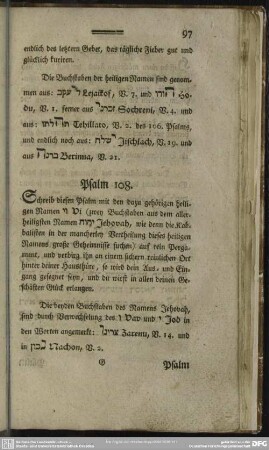 97
endlich des letztern Gebet, das tägliche Fieber gut und
glücklich kuriren.
Die Buchstaben der heiligen Namen sind genom-
men aus: ליעקב Lejaikof, V. 7. und הודו Ho-
du, V. 1. ferner aus זכרני Sochreni, V. 4. und
aus: תהלתו Tehillato, V. 2. des 106. Psalms,
und endlich noch aus: ישלח Jischlach, V. 19. und
aus ברנה Berinna, V. 21.
Psalm 108.
Schreib diesen Psalm mit den dazu gehörigen heili-
gen Namen וי Vi (zwey Buchstaben aus dem aller-
heiligsten Namen יהוה Jehovah, wie denn die Kab-
balisten in der mancherley Vertheilung dieses heiligen
Namens große Geheimnisse suchen) auf rein Perga-
ment, und verbirg ihn an einem sichern räumlichen Ort
hinter deiner Hausthüre, so wird dein Aus- und Ein-
gang gesegnet seyn, und du wirst in allen deinen Ge-
schäften Glück erlangen.
Die beyden Buchstaben des Namens Jehovah,
sind durch Verwechselung des ו Vav und י Jod in
den Worten angemerkt: צרינו Zarenu, V. 14. und
in נכון Nachon, V. 2.
G Psalm